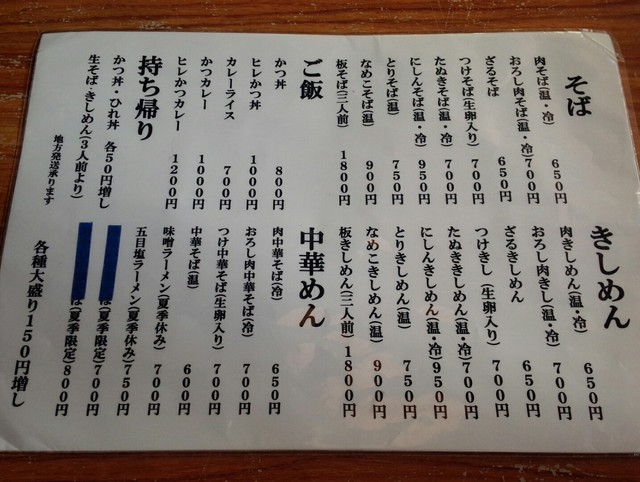 そば
肉そば(温・冷) 650円
おろし肉そば(温・冷)700円
ざるそば 650円
つけそば(生卵入り) 700円
たぬきそば(温・冷) 700円
にしんそば(温・冷) 950円
とりそば(温) 750円
なめこそば(温) 900円
板そば(三人前) 1800円
ご飯
かつ丼 800円
ヒレかつ丼 1000円
カレーライス 700円
かつカレー 1000円
ヒレかつカレー 1200円
持ち帰り
かつ丼・ひれ丼 各50円増し
生そば・きしめん(3人前より)
地方発送承ります
きしめん
肉きしめん(温・冷) 650円
おろし肉きし(温・冷) 700円
ざるきしめん 650円
つけきし(生卵入り) 700円
たぬききしめん(温・冷) 700円
にしんきしめん(温・冷) 950円
とりきしめん(温) 750円
なめこきしめん(温) 900円
板きしめん(三人前) 1800円
中華めん
肉中華そば(冷) 650円
おろし肉中華そば(冷) 700円
つけ中華そば(生卵入り) 700円
中華そば(温) 600円
味噌ラーメン(夏季休み) 700円
五目塩ラーメン(夏季休み) 750円
ば(夏季限定) 700円
ば(夏季限定) 800円
各種大盛り150円増し